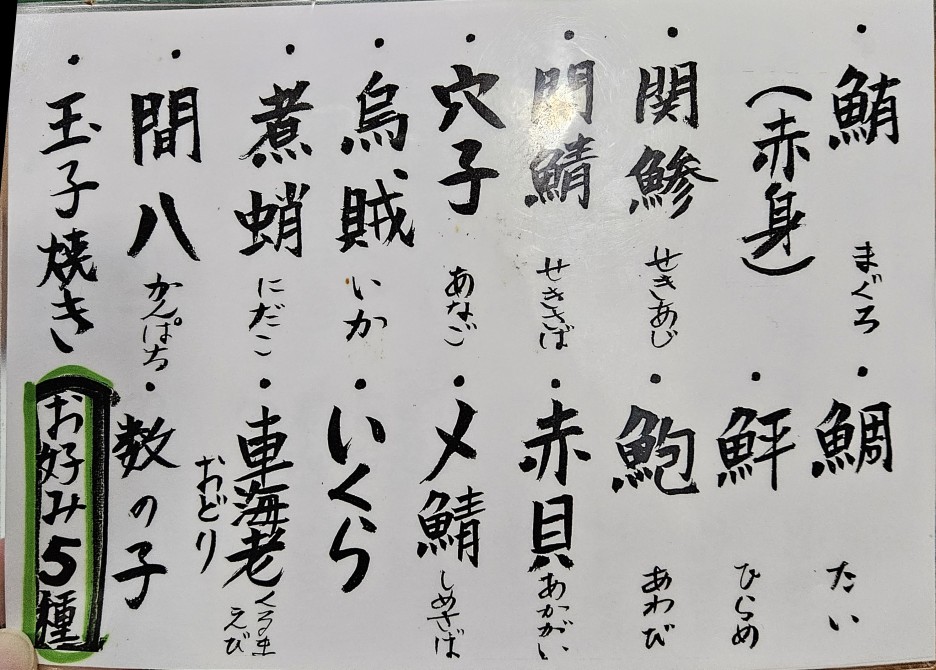 ・鮪 まぐろ
(赤身)
・関鯵 せきあじ
・関鯖 せきさば
・穴子 あなご
・烏賊 いか
・煮蛸 にだこ
・間八 かんぱち
・玉子焼き
・鯛 たい
・鮃 ひらめ
・鮑 あわび
・赤貝 あかがい
・〆鯖 しめさば
・いくら
・車海老 くるまえび
おどり
・数の子
お好み5種